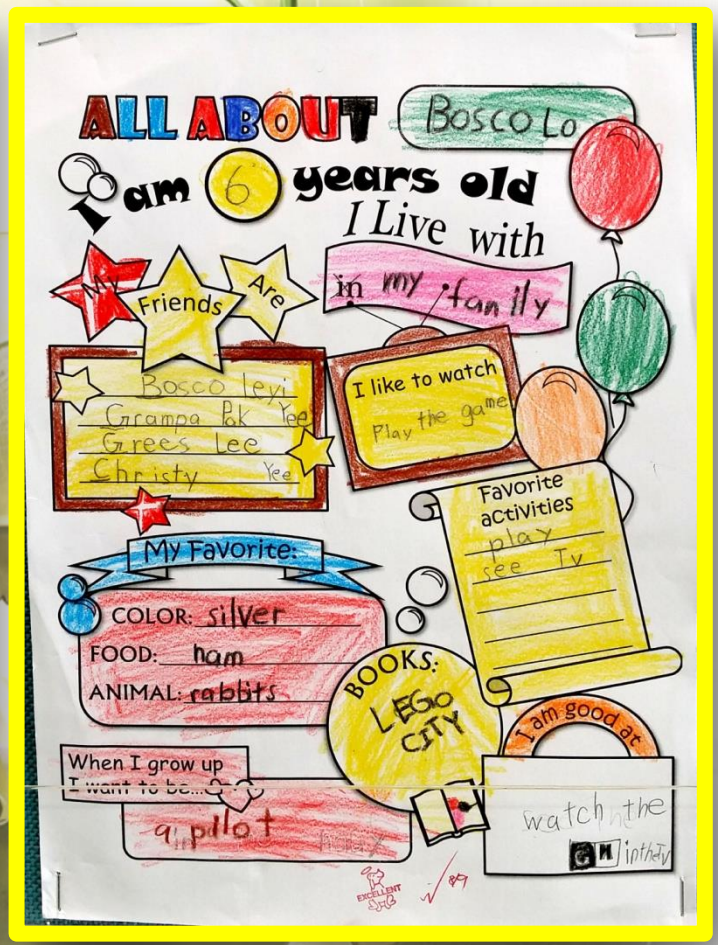 ALL ABOUT Bosco Lo
I am 6 years old
I Live with
in my family
My Friends Are
Bosco leyi
Grampa Pak Yee
Grees Lee
Christy Yee
I like to watch
Play the game
Favorite
activities
play
see Tv
My Favorite:
COLOR: silver
FOOD: ham
ANIMAL: rabbits
BOOKS:
LEGO
CITY
I am good at
watch the
in the Tv
When I grow up
I want to be...
a pilot
EXCELLENT